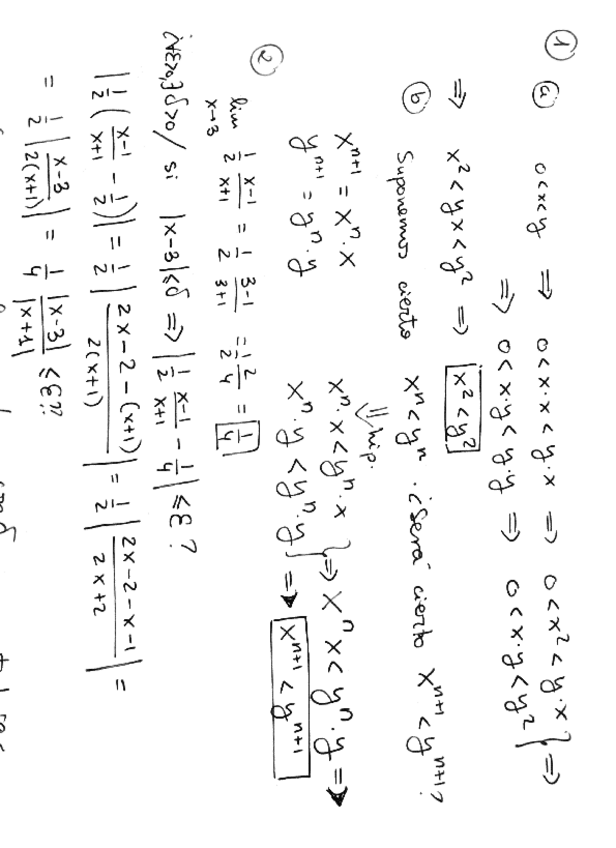 ① ⓐ 0<x<y ⇒ 0<x·x<y·x ⇒ 0<x²<y·x } ⇒
⇒ 0<x·y<y·y ⇒ 0<x·y<y² }
⇒ x²<yx<y² ⇒ x²<y²
ⓑ Suponemos cierto xⁿ<yⁿ. ¿Será cierto xⁿ⁺¹<yⁿ⁺¹?
⇓ hip.
xⁿ⁺¹ = xⁿ·x xⁿ·x<yⁿ·x } ⇒ xⁿx<yⁿ·y ⇒
yⁿ⁺¹ = yⁿ·y xⁿ·y<yⁿ·y } ⇒ xⁿ⁺¹<yⁿ⁺¹
② lim x→3 1/2 (x-1)/(x+1) = 1/2 (3-1)/(3+1) = 1/2 2/4 = 1/4
¿∀ε>0,∃δ>0/ si |x-3|<δ ⇒ |1/2 (x-1)/(x+1) - 1/4|<ε?
|1/2((x-1)/(x+1) - 1/2)| = 1/2 |(2x-2-(x+1))/(2(x+1))| = 1/2 |(2x-2-x-1)/(2x+2)| =
= 1/2 |(x-3)/(2(x+1))| = 1/4 |x-3|/|x+1| <ε??